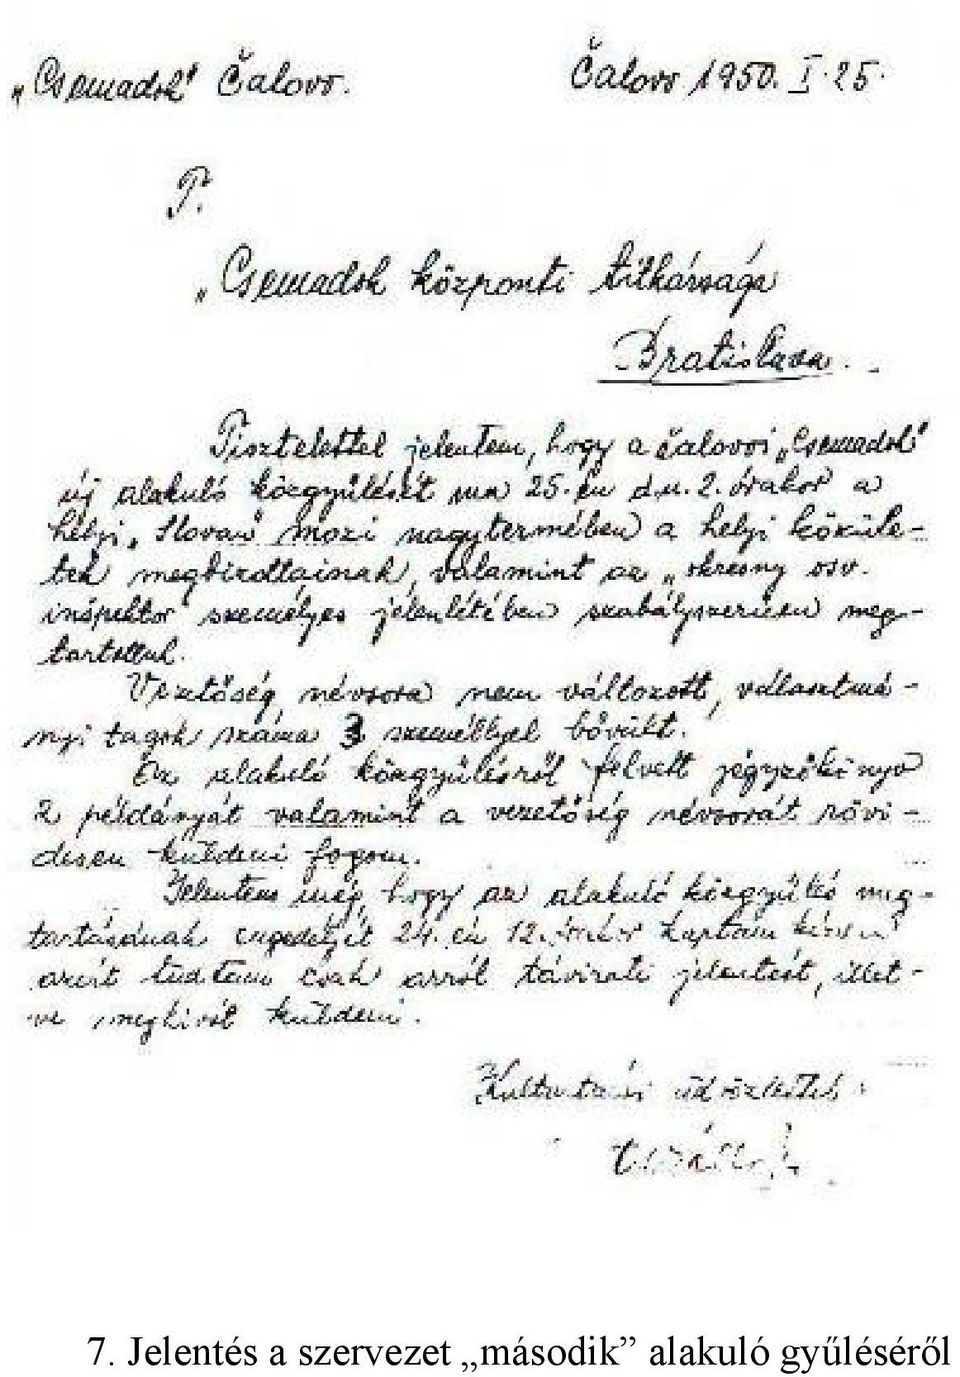 „Csemadok" Čalovo. Čalovo 1950. I. 25.
T.
„Csemadok központi titkársága
Bratislava.
Tisztelettel jelentem, hogy a čalovoi „Csemadok"
új alakuló közgyűlését ma 25.-én d.u. 2. órakor a
helyi „Slovan" mozi nagytermében a helyi közüle-
tek megbizottainak, valamint az „okresny osv.
inšpektor" személyes jelenlétében szabályszerüen meg-
tartottuk.
Vezetőség névsora nem változott, választmá-
nyi tagok száma 3 személlyel bővült.
Az alakuló közgyűlésről felvett jegyzőkönyv
2 példányát valamint a vezetőség névsorát rövi-
desen küldeni fogom.
Jelentem még, hogy az alakuló közgyűlés meg-
tartásának engedélyét 24.-én 12. órakor kaptam
azért tudtam csak arról távirati jelentést, illet-
ve meghivót küldeni.
üdvözlettel:
7. Jelentés a szervezet „második” alakuló gyűléséről